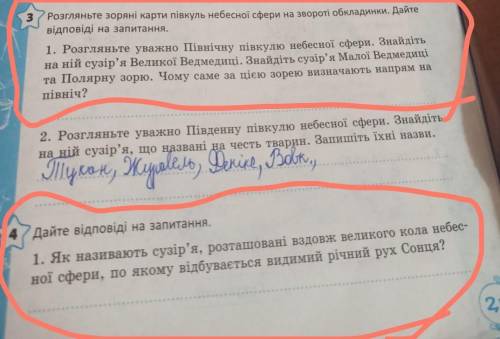 3 Розгляньте зоряні карти півкуль небесної сфери на звороті обкладинки. Дайте
відповіді на запитання.
1. Розгляньте уважно Північну півкулю небесної сфери. Знайдіть
на ній сузір’я Великої Ведмедиці. Знайдіть сузір’я Малої Ведмедиці
та Полярну зорю. Чому саме за цією зорею визначають напрям на
північ?
2. Розгляньте уважно Південну півкулю небесної сфери. Знайдіть
на ній сузір’я, що названі на честь тварин. Запишіть їхні назви.
Тукан, Журавель, Фенікс, Вовк,
4 Дайте відповіді на запитання.
1. Як називають сузір’я, розташовані вздовж великого кола небес-
ної сфери, по якому відбувається видимий річний рух Сонця?